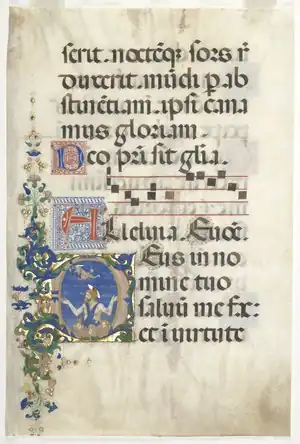 serit. noctēq; sors r̄
duxerit. mūdi p̄ ab
stinentiam. ipsi cana
mus gloriam
Deo pr̄i sit gl̄ia.
Alleluia. Euoē.
Deus in no
mine tuo
saluū me fac:
et ī uirtute